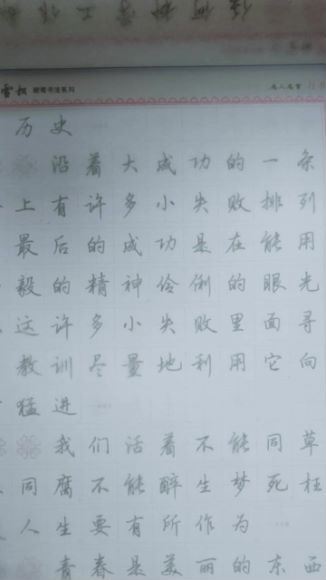 硬笔书法系列
名人名言
历史
沿着大成功的一条
上有许多小失败排列
最后的成功是在能用
毅的精神伶俐的眼光
这许多小失败里面寻
教训尽量地利用它向
猛进
我们活着不能同草
同腐不能醉生梦死枉
人生要有所作为
青春是美丽的东西